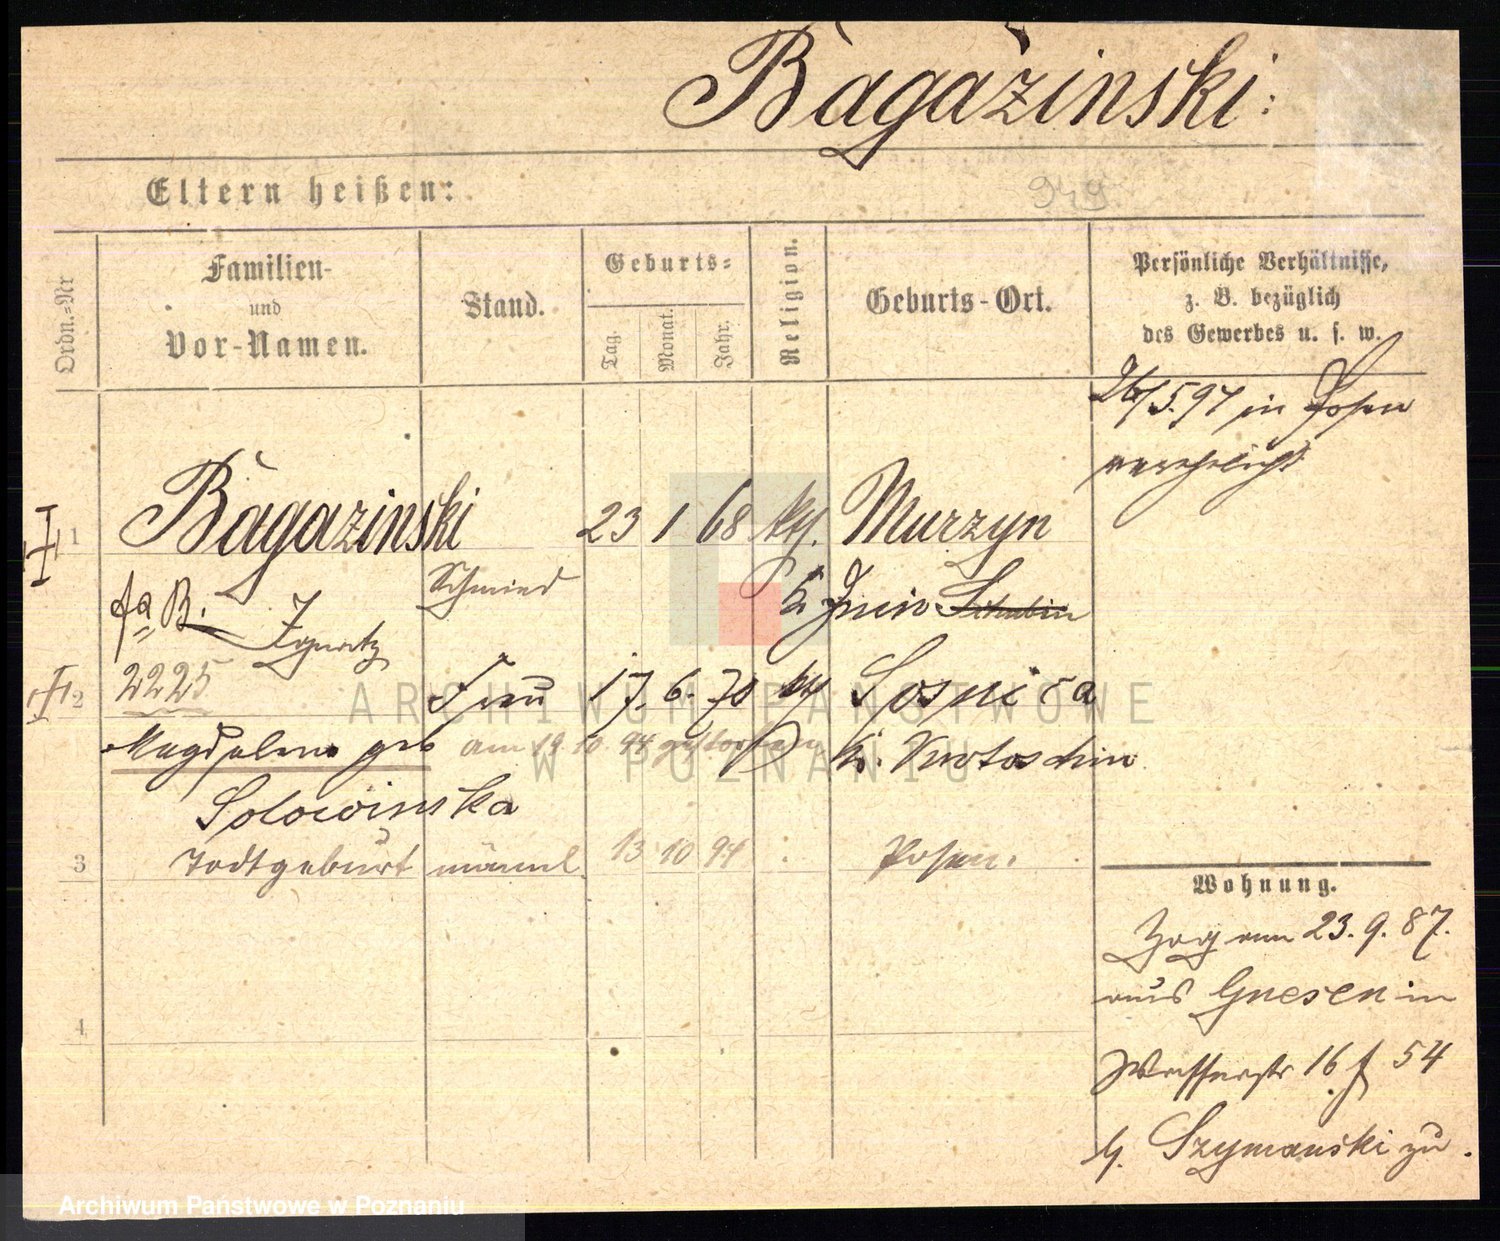 Bagażinski:
Eltern heißen:
949.
Ordn.-Nr
Familien-
und
Vor-Namen.
Stand.
Geburts-
Tag.
Monat.
Jahr.
Religion.
Geburts-Ort.
Persönliche Verhältnisse,
z. B. bezüglich
des Gewerbes u. s. w.
26/5.94 in Posen
verehelicht
1 Bagazinski 23 1 68 kth. Murzyn
Schmied
B. Ignatz K. Znin Schubin
2 2225 Frau 17. 6. 70 kth Sosnica
Magdalene geb am 19 10. 94 gestorben K. Krotoschin
Solowinska
3 Todtgeburt männl 13 10 94 Posen.
Wohnung.
Zog am 23. 9. 87.
aus Gnesen in
Wasserstr 16 f 54
b. Szymanski zu.
4
ARCHIWUM PAŃSTWOWE
W POZNANIU
Archiwum Państwowe w Poznaniu